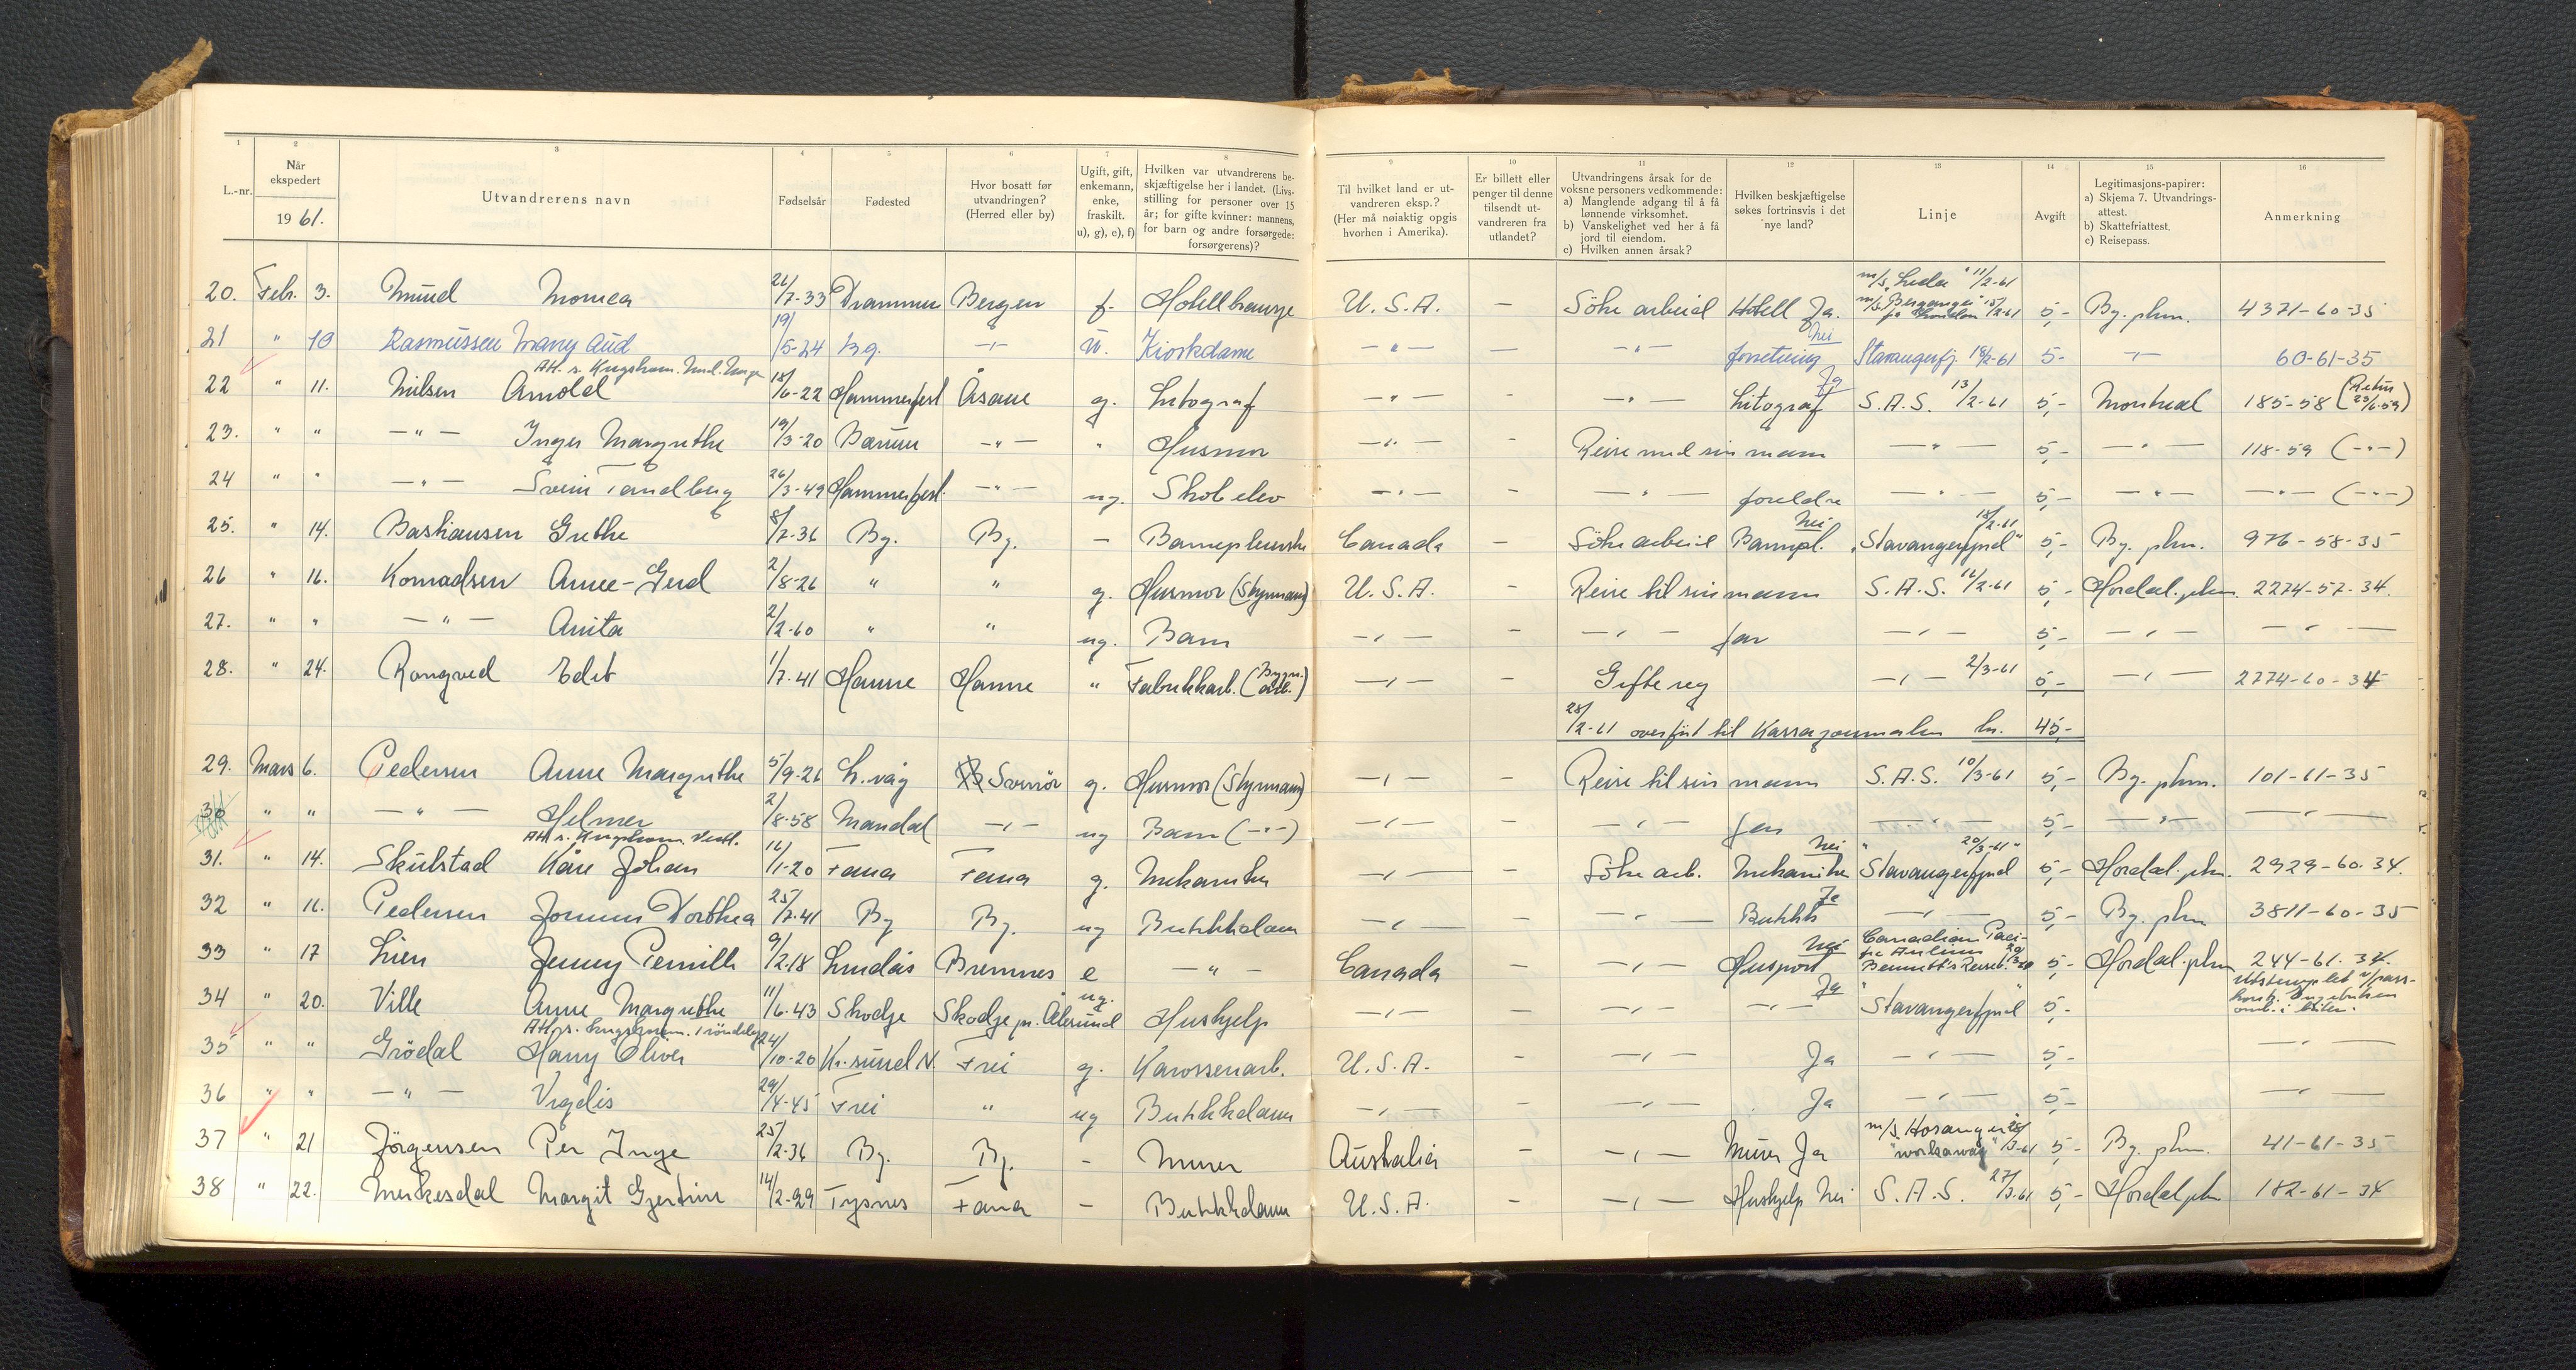 1 2 3 4 5 6 7 8 9 10 11 12 13 14 15 16
L.-nr.
Når
ekspedert
19 61.
Utvandrerens navn
Fødselsår
Fødested
Hvor bosatt før
utvandringen?
(Herred eller by)
Ugift, gift,
enkemann,
enke,
fraskilt.
u), g), e), f)
Hvilken var utvandrerens be-
skjæftigelse her i landet. (Livs-
stilling for personer over 15
år; for gifte kvinner: mannens,
for barn og andre forsørgede:
forsørgerens)?
Til hvilket land er ut-
vandreren eksp.?
(Her må nøiaktig opgis
hvorhen i Amerika).
Er billett eller
penger til denne
tilsendt ut-
vandreren fra
utlandet?
Utvandringens årsak for de
voksne personers vedkommende:
a) Manglende adgang til å få
lønnende virksomhet.
b) Vanskelighet ved her å få
jord til eiendom.
c) Hvilken annen årsak?
Hvilken beskjæftigelse
søkes fortrinsvis i det
nye land?
Linje
Avgift
Legitimasjons-papirer:
a) Skjema 7. Utvandrings-
attest.
b) Skattefriattest.
c) Reisepass.
Anmerkning
m/s "Leda" 11/2-61
20. Febr. 3. Muud Monica 26/7-33 Drammen Bergen f. Hotellbransje U.S.A. — Söke arbeid Hotell Ja. m/s "Beranger" 15/2-61 5,- By. pkm. 4371-60-35
fra London
21 " 10 Rasmussen Mary Aud 19/5-24 Bg. —"— u. Kioskdame —"— — —"— forretning Nei Stavangerfj. 18/2-61 5- —"— 60-61-35
22 " 11. Nilsen Arnold 18/6-22 Hammerfest Åsane g. Litograf —"— - —"— Litograf Ja S.A.S. 13/2-61 5,- Montreal 185-58 (Retur 23/6-59)
23. " " —"— Inger Margrethe 19/3-20 Bærum —"— " Husmor —"— - Reise med sin mann —"— 5,- —"— 118-59 (-"-)
24 " " —"— Svein Tandberg 26/3-49 Hammerfest —"— ug. Skoleelev —"— - —"— foreldre —"— 5,- —"— —"— (-"-)
25. " 14. Bastiansen Grethe 8/7-36 By. By. - Barnepleierske Canada — Söke arbeid Barnepl. Nei "Stavangerfjord" 18/2-61 5,- By. pkm. 976-58-35
26 " 16. Konradsen Anne-Gerd 2/8-26 " " g. Husmor (Styrmann) U.S.A. - Reise til sin mann S.A.S. 16/2-61 5,- Hordal. pkm. 2274-57-34.
27. " " —"— Anita 2/2-60 " " ug. Barn —"— - —"— far —"— 5,- —"— —"—
28. " 24. Rongved Edit 1/7-41 Hamre Hamre " Fabrikkarb. (Bygn. arb.) —"— - Gifte seg —"— 2/3-61 5,- —"— 2774-60-34
28/2-61 overfört til Kassajournalen kr. 45,-
29. Mars 6. Pedersen Anne Margrethe 5/9-26 g. Husmor (Styrmann) —"— - Reise til sin mann S.A.S. 10/3-61 5,- By. pkm. 101-61-35
30 " " —"— Helmer 2/8-58 Mandal —"— ug Barn (-"-) —"— - —"— far —"— 5,- —"— —"—
31. " 14. Skulstad Kåre Johan 16/1-20 Fana Fana g. Mekaniker —"— - Söke arb. Mekaniker Nei "Stavangerfjord" 20/3-61 5,- Hordal. pkm. 2929-60-34.
32 " 16. Pedersen Dorthea 25/7-41 By By. ug Butikkdame —"— - —"— Butikk Ja —"— 5,- By. pkm 3811-60-35
33 " 17 Lien Jenny Pernille 9/2-18 Lindås Bremnes e —"— Canada - —"— Huspost Nei Canadian Paci- 5,- Hordal. pkm 244-61-34.
Bennett's Reiseb.
34 " 20. Ville Anne Margrethe 11/6-43 Skodje Skodje pr. Ålesund ug. Hushjelp —"— - —"— —"— Ja "Stavangerfjord" 5,-
35 " " Grödal Harry Oliver 24/10-20 Kr.sund N. Frei g. Karosseriarb. U.S.A. - —"— Ja —"— 5,- —"—
36 " " —"— Vigdis 29/4-45 Frei " ug Butikkdame —"— - —"— Ja —"— 5,- —"—
37 " 21 Jörgensen Per Inge 25/2-36 By. By. - Murer Australia - —"— Murer Ja m/s Hosanger "workaway" 28/3-61 5,- By. pkm. 41-61-35
38 " 22. Merkesdal Margit Gjertine 14/2-29 Tysnes Fana - Butikkdame U.S.A. - —"— Hushjelp Nei S.A.S. 27/3-61 5,- Hordal pkm 182-61-34